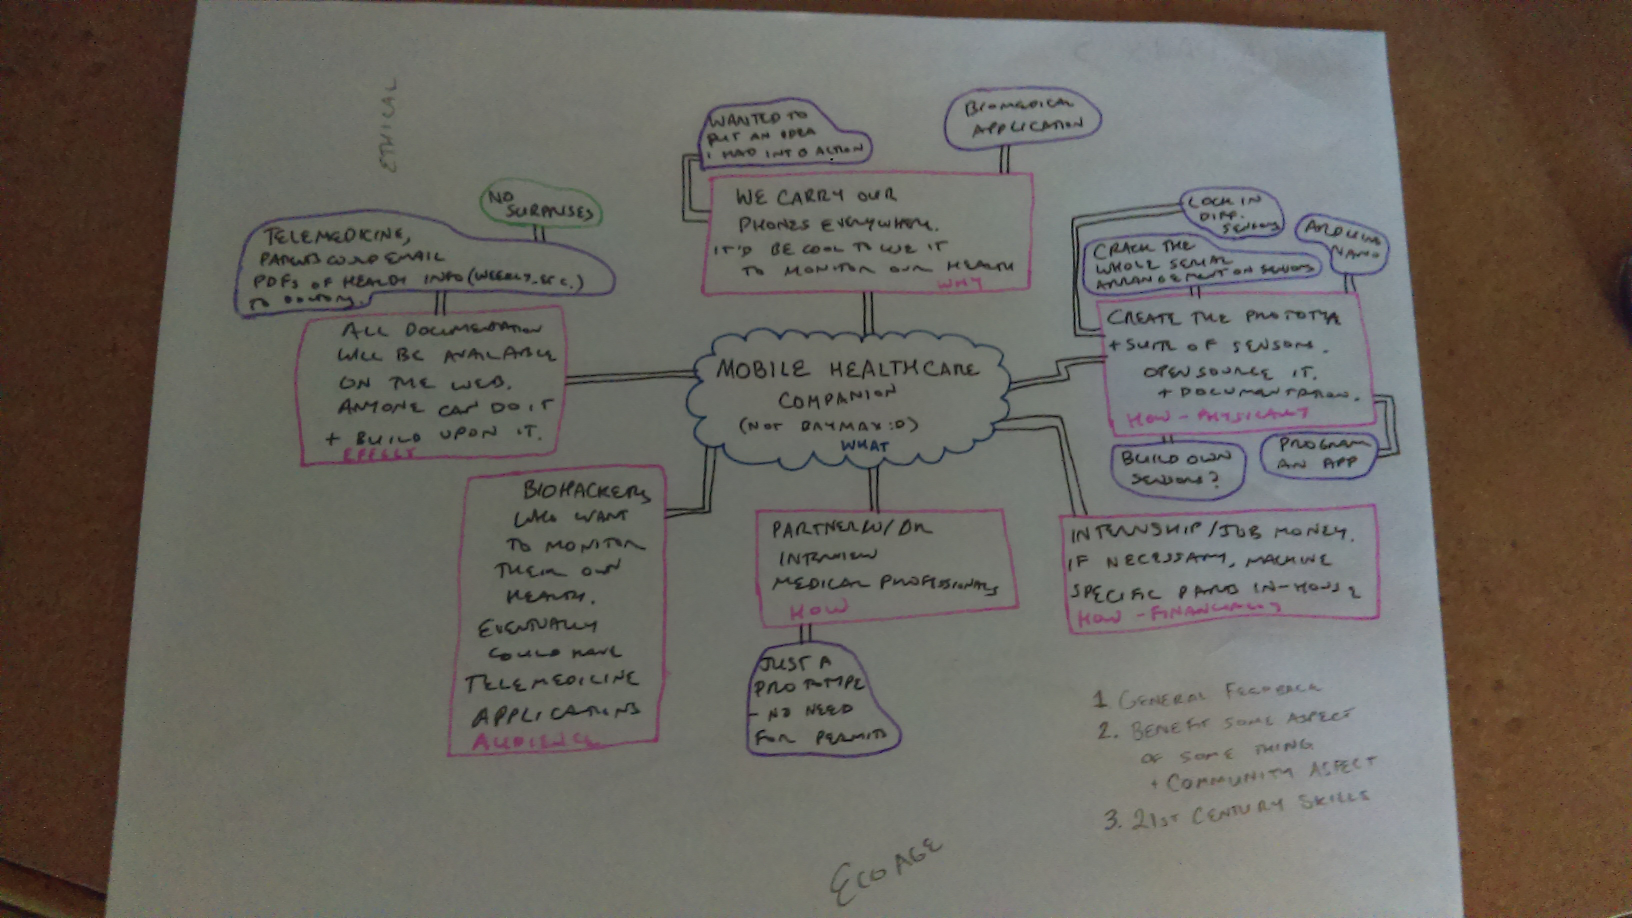 ETHICAL
WANTED TO
PUT AN IDEA
I HAD INTO ACTION
BIOMEDICAL
APPLICATION
WE CARRY OUR
PHONES EVERYWHERE.
IT'D BE COOL TO USE IT
TO MONITOR OUR HEALTH
WHY
NO
SURPRISES
TELEMEDICINE,
PATIENTS COULD EMAIL
PDFS OF HEALTH INFO (WEEKLY, ETC.)
TO DOCTORS.
ALL DOCUMENTATION
WILL BE AVAILABLE
ON THE WEB.
ANYONE CAN DO IT
+ BUILD UPON IT.
EFFECT
MOBILE HEALTHCARE
COMPANION
(NOT BAYMAX :D)
WHAT
LOCK IN
DIFF.
SENSORS
ARDUINO
NANO
CRACK THE
WHOLE SERIAL
ARRANGEMENT ON SENSORS
CREATE THE PROTOTYPE
+ SUITE OF SENSORS.
OPEN SOURCE IT.
+ DOCUMENTATION.
HOW - PHYSICALLY
BUILD OWN
SENSORS?
PROGRAM
AN APP
BIOHACKERS
WHO WANT
TO MONITOR
THEIR OWN
HEALTH.
EVENTUALLY
COULD HAVE
TELEMEDICINE
APPLICATIONS
AUDIENCE
PARTNER W/ DR
INTERVIEW
MEDICAL PROFESSIONALS
HOW
JUST A
PROTOTYPE
- NO NEED
FOR PERMITS
INTERNSHIP/JOB MONEY.
IF NECESSARY, MACHINE
SPECIFIC PARTS IN-HOUSE
HOW - FINANCIALLY
1. GENERAL FEEDBACK
2. BENEFIT SOME ASPECT
OF SOME THING
+ COMMUNITY ASPECT
3. 21ST CENTURY SKILLS
ECO AGE